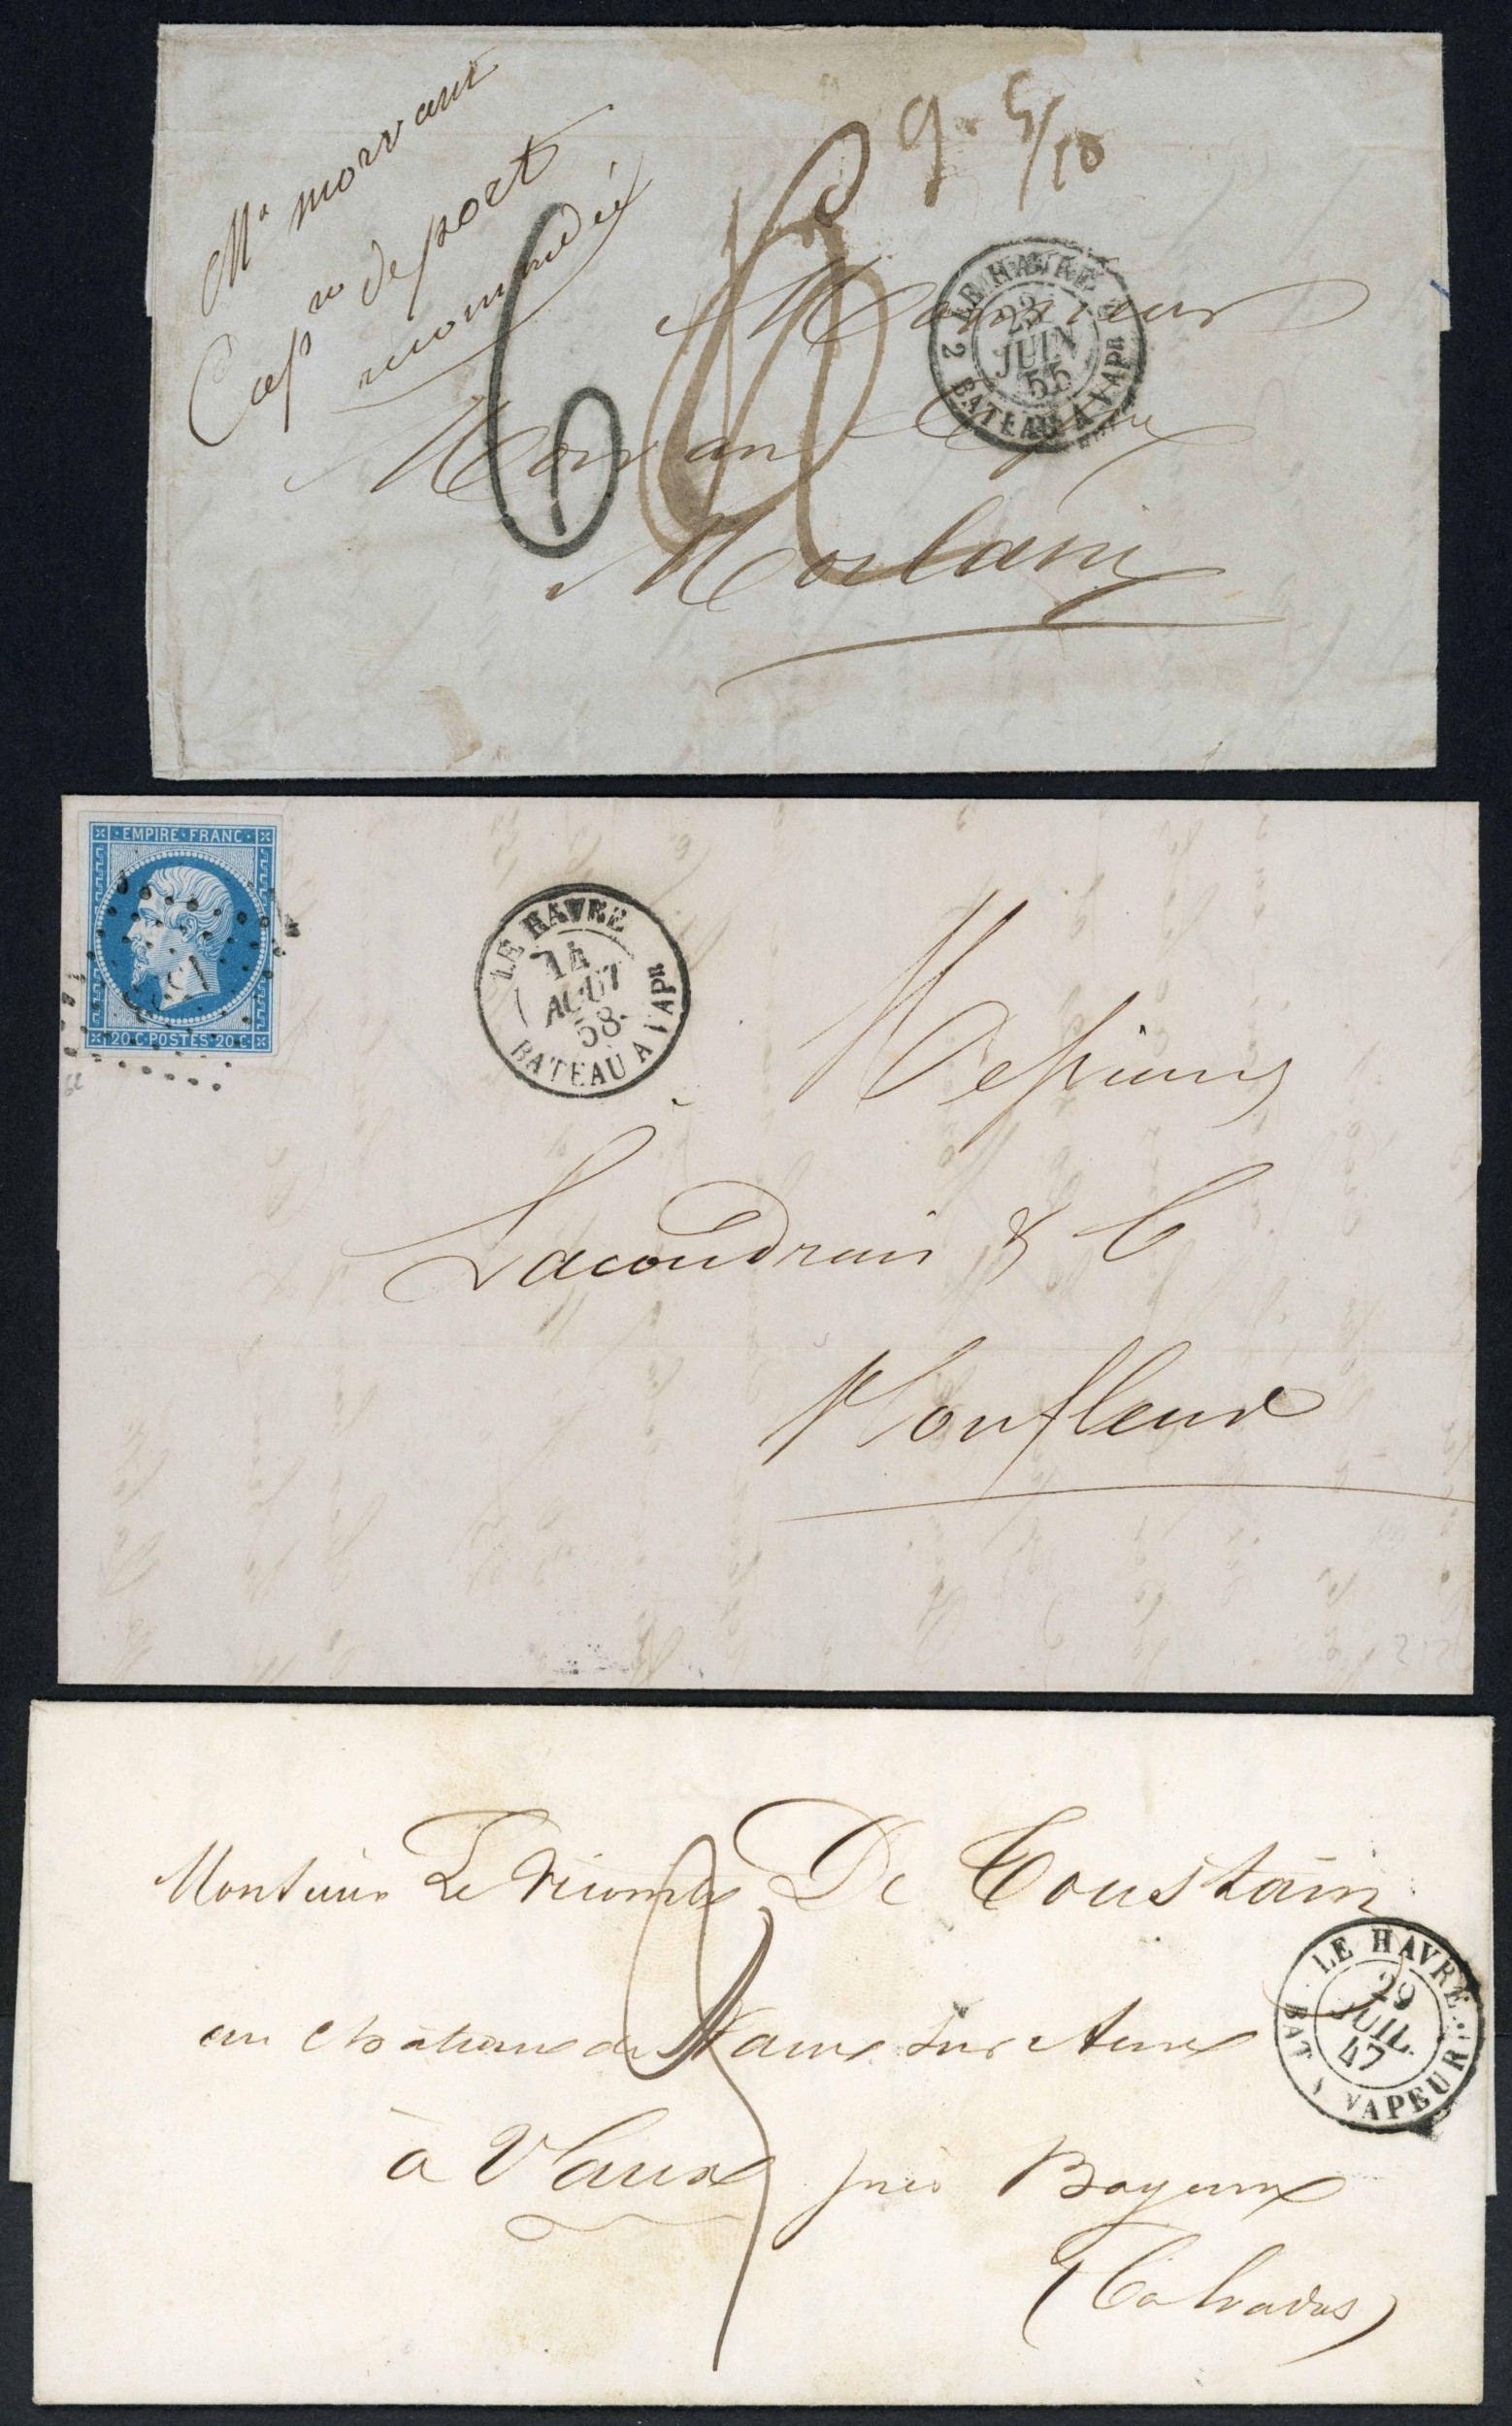 Mr Morvan
Capne de port
recommandée
9. 5/10
6
Monsieur
Morvan
Morlaix
LE HAVRE
2 BATEAU A VAPR 2
23
JUIN
55
EMPIRE FRANC
20 C POSTES 20 C
LE HAVRE
14
AOUT
58
BATEAU A VAPR
Messieurs
Lacoudrais & C
Honfleur
212
Monsieur Le Vicomte De Toustain
au château de Vaux sur Aure
à Vaux près Bayeux
(Calvados)
LE HAVRE
29
JUIL.
47
BAT. A VAPEUR